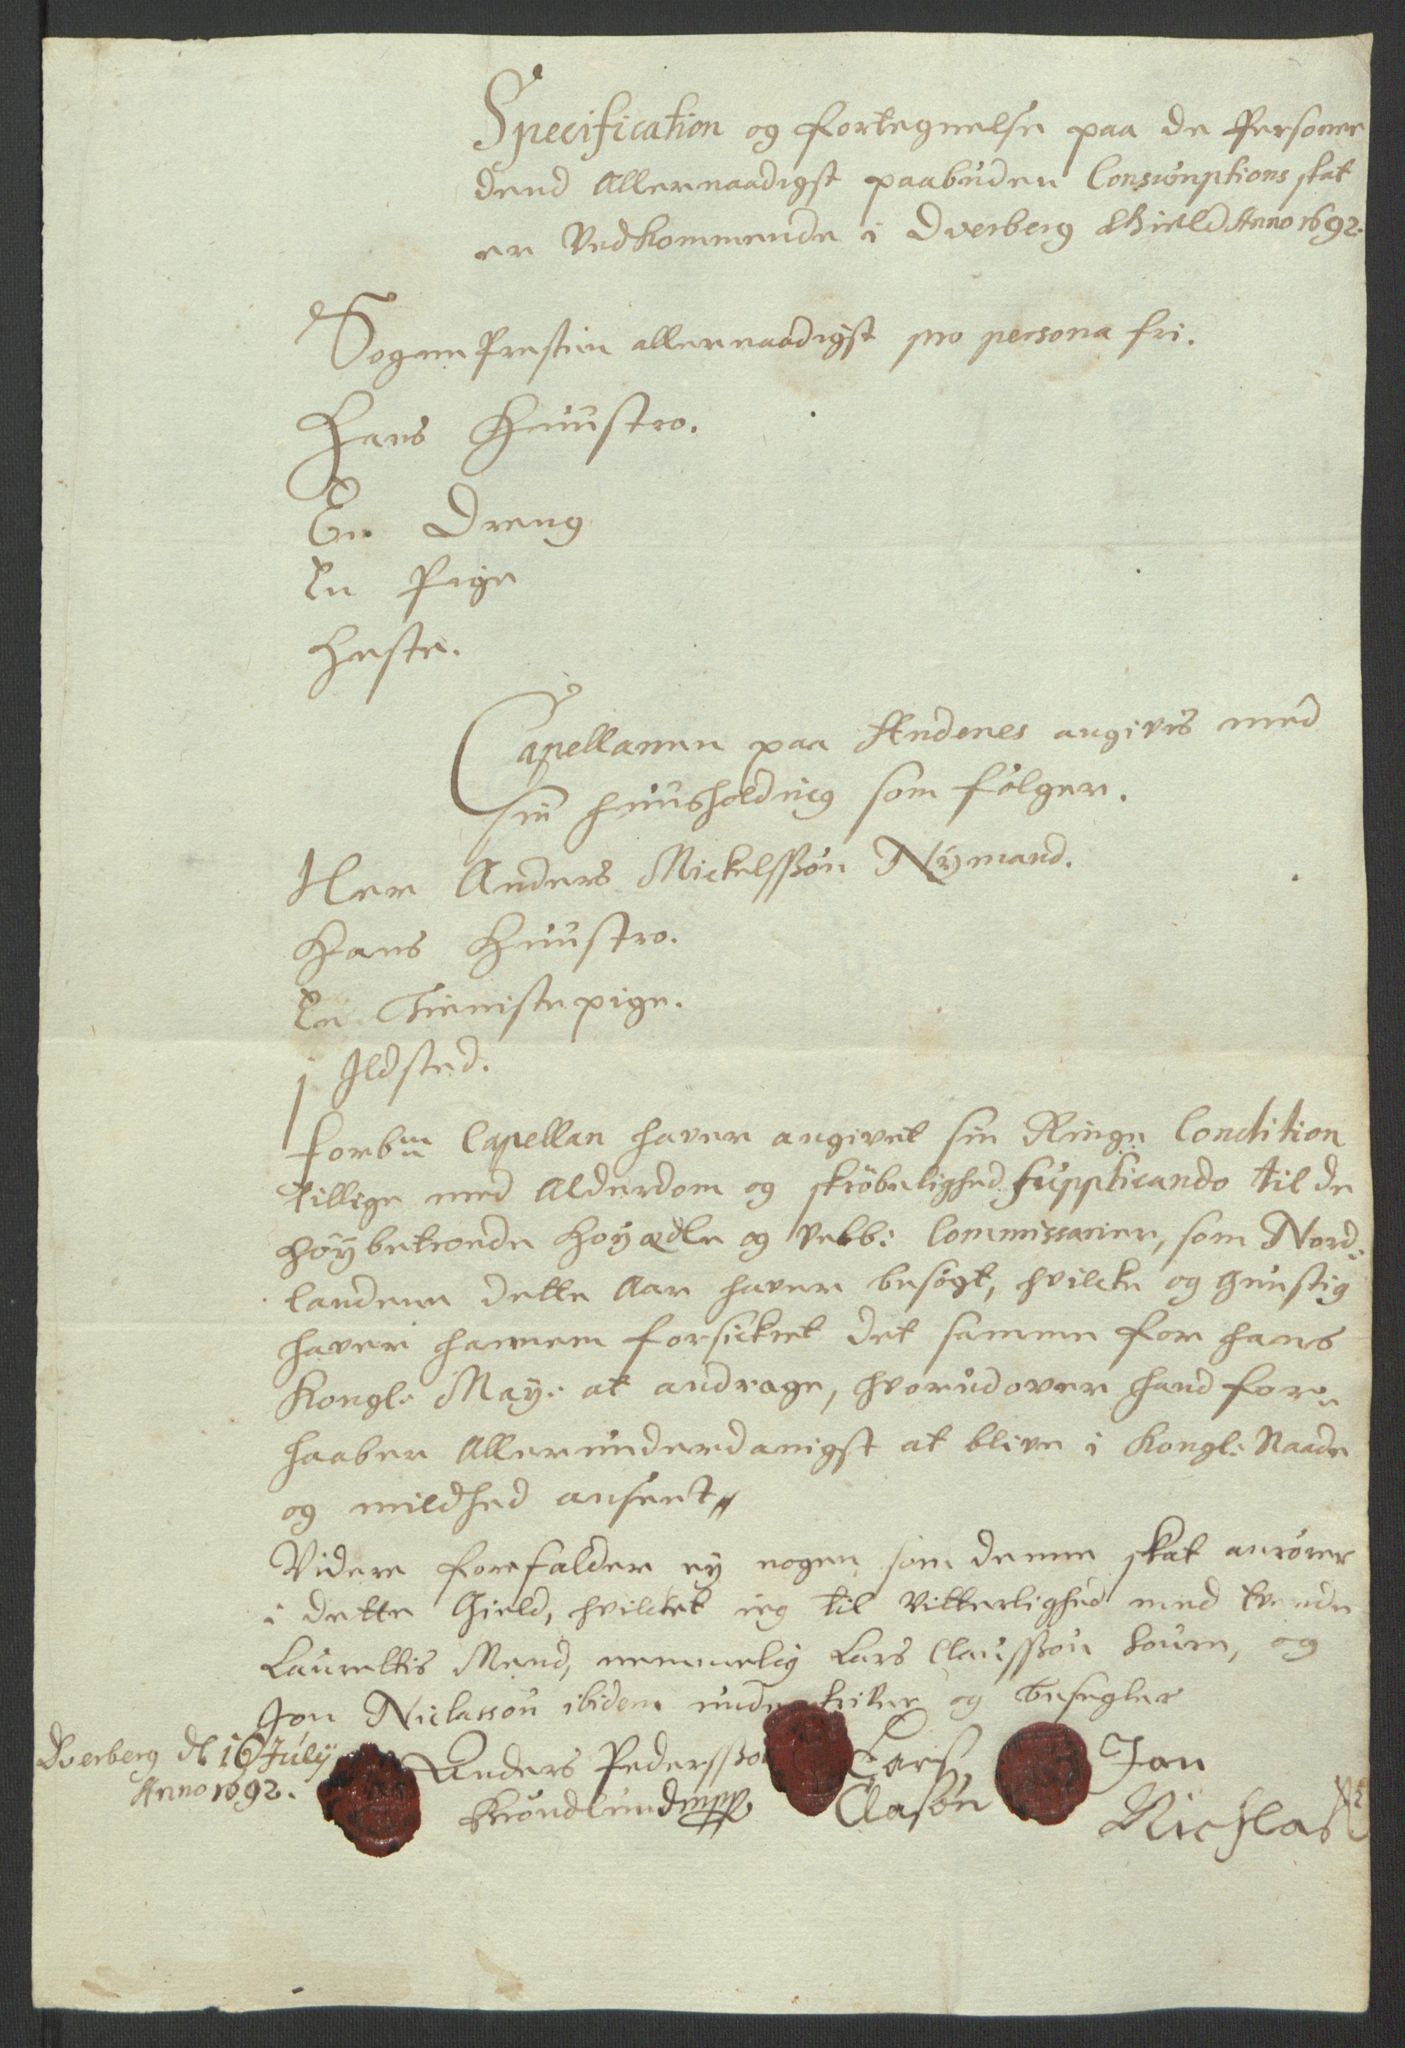 Specification og fortegnelse paa de Personer
dend Allernaadigst paabuden Consumptions skat
er Vedkommende i Dverberg Gield Anno 1692.
Sogne Presten allernaadigst pro persona fri.
Hans Huustro.
En Dreng
En Pige
Heste.
Capellanen paa Andenes angives med
sin huusholding som følger.
Her Anders Mickelssøn Nÿmand.
Hans Huustro.
En Tienistepige.
j Ildsted.
Forbn Capellan haver angivet sin Ringe Condition
tillige med Alderdom og skrøbelighed supplicando til de
høÿbetroede Høyædle og velb: Commissarier, som Nord-
landene dette Aar haver besøgt, hvilcke og gunstig
haver hannem forsickret det samme for hans
Kongl: May: at andrage, hvorudover hand for-
haaber Allerunderdanigst at blive i Kongl: Naade
og mildhed anseet
Videre forefalder ej nogen som denne skat anrører
i dette Gield, hvilcket ieg til Vitterlighed med tvende
Laurettis Mend, nemmelig Lars Claussøn Soure, og
Jon Niclassøn ibidem underskriver og besegler
Dverberg dl 16 July
Anno 1692.
Anders Pederssøn
Brøndlund mpp
Lars
Clasøn
Jon
Nichlas